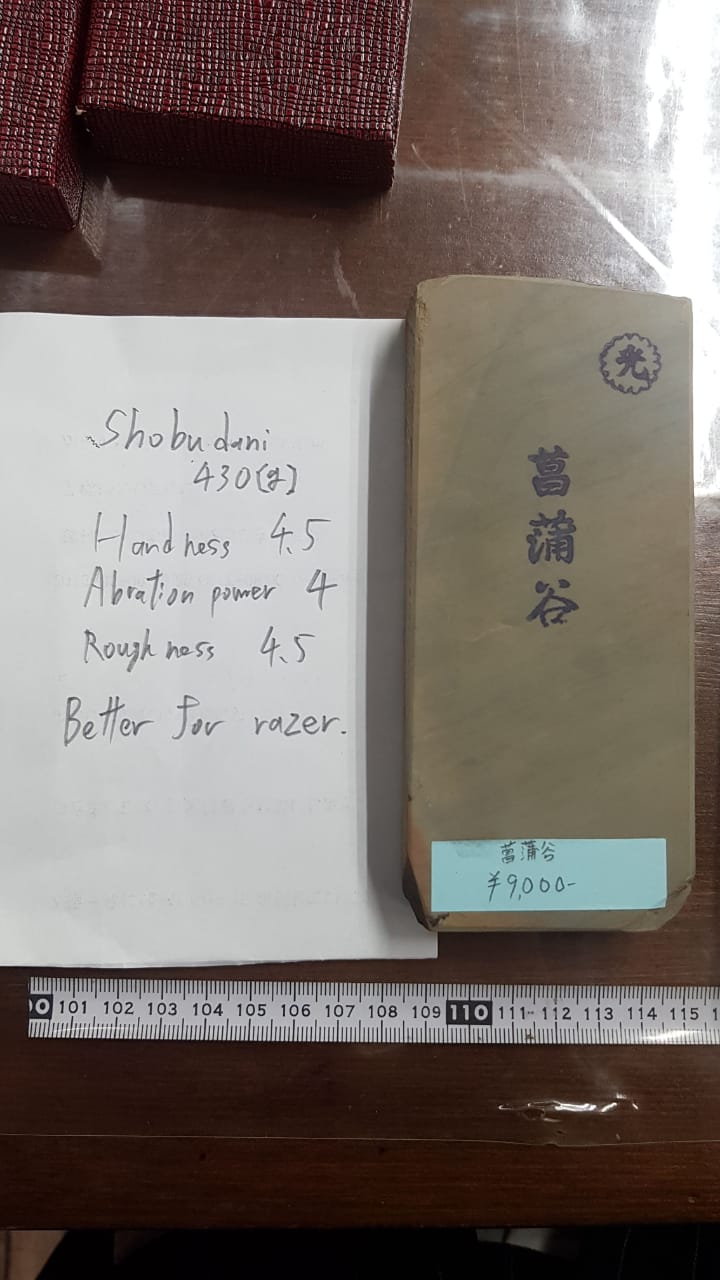 Shobudani
430[g]
Hardness 4.5
Abration power 4
Roughness 4.5
Better for razer.
光
菖
蒲
谷
菖蒲谷
¥9,000-
0 101 102 103 104 105 106 107 108 109 110 111 112 113 114 115 1